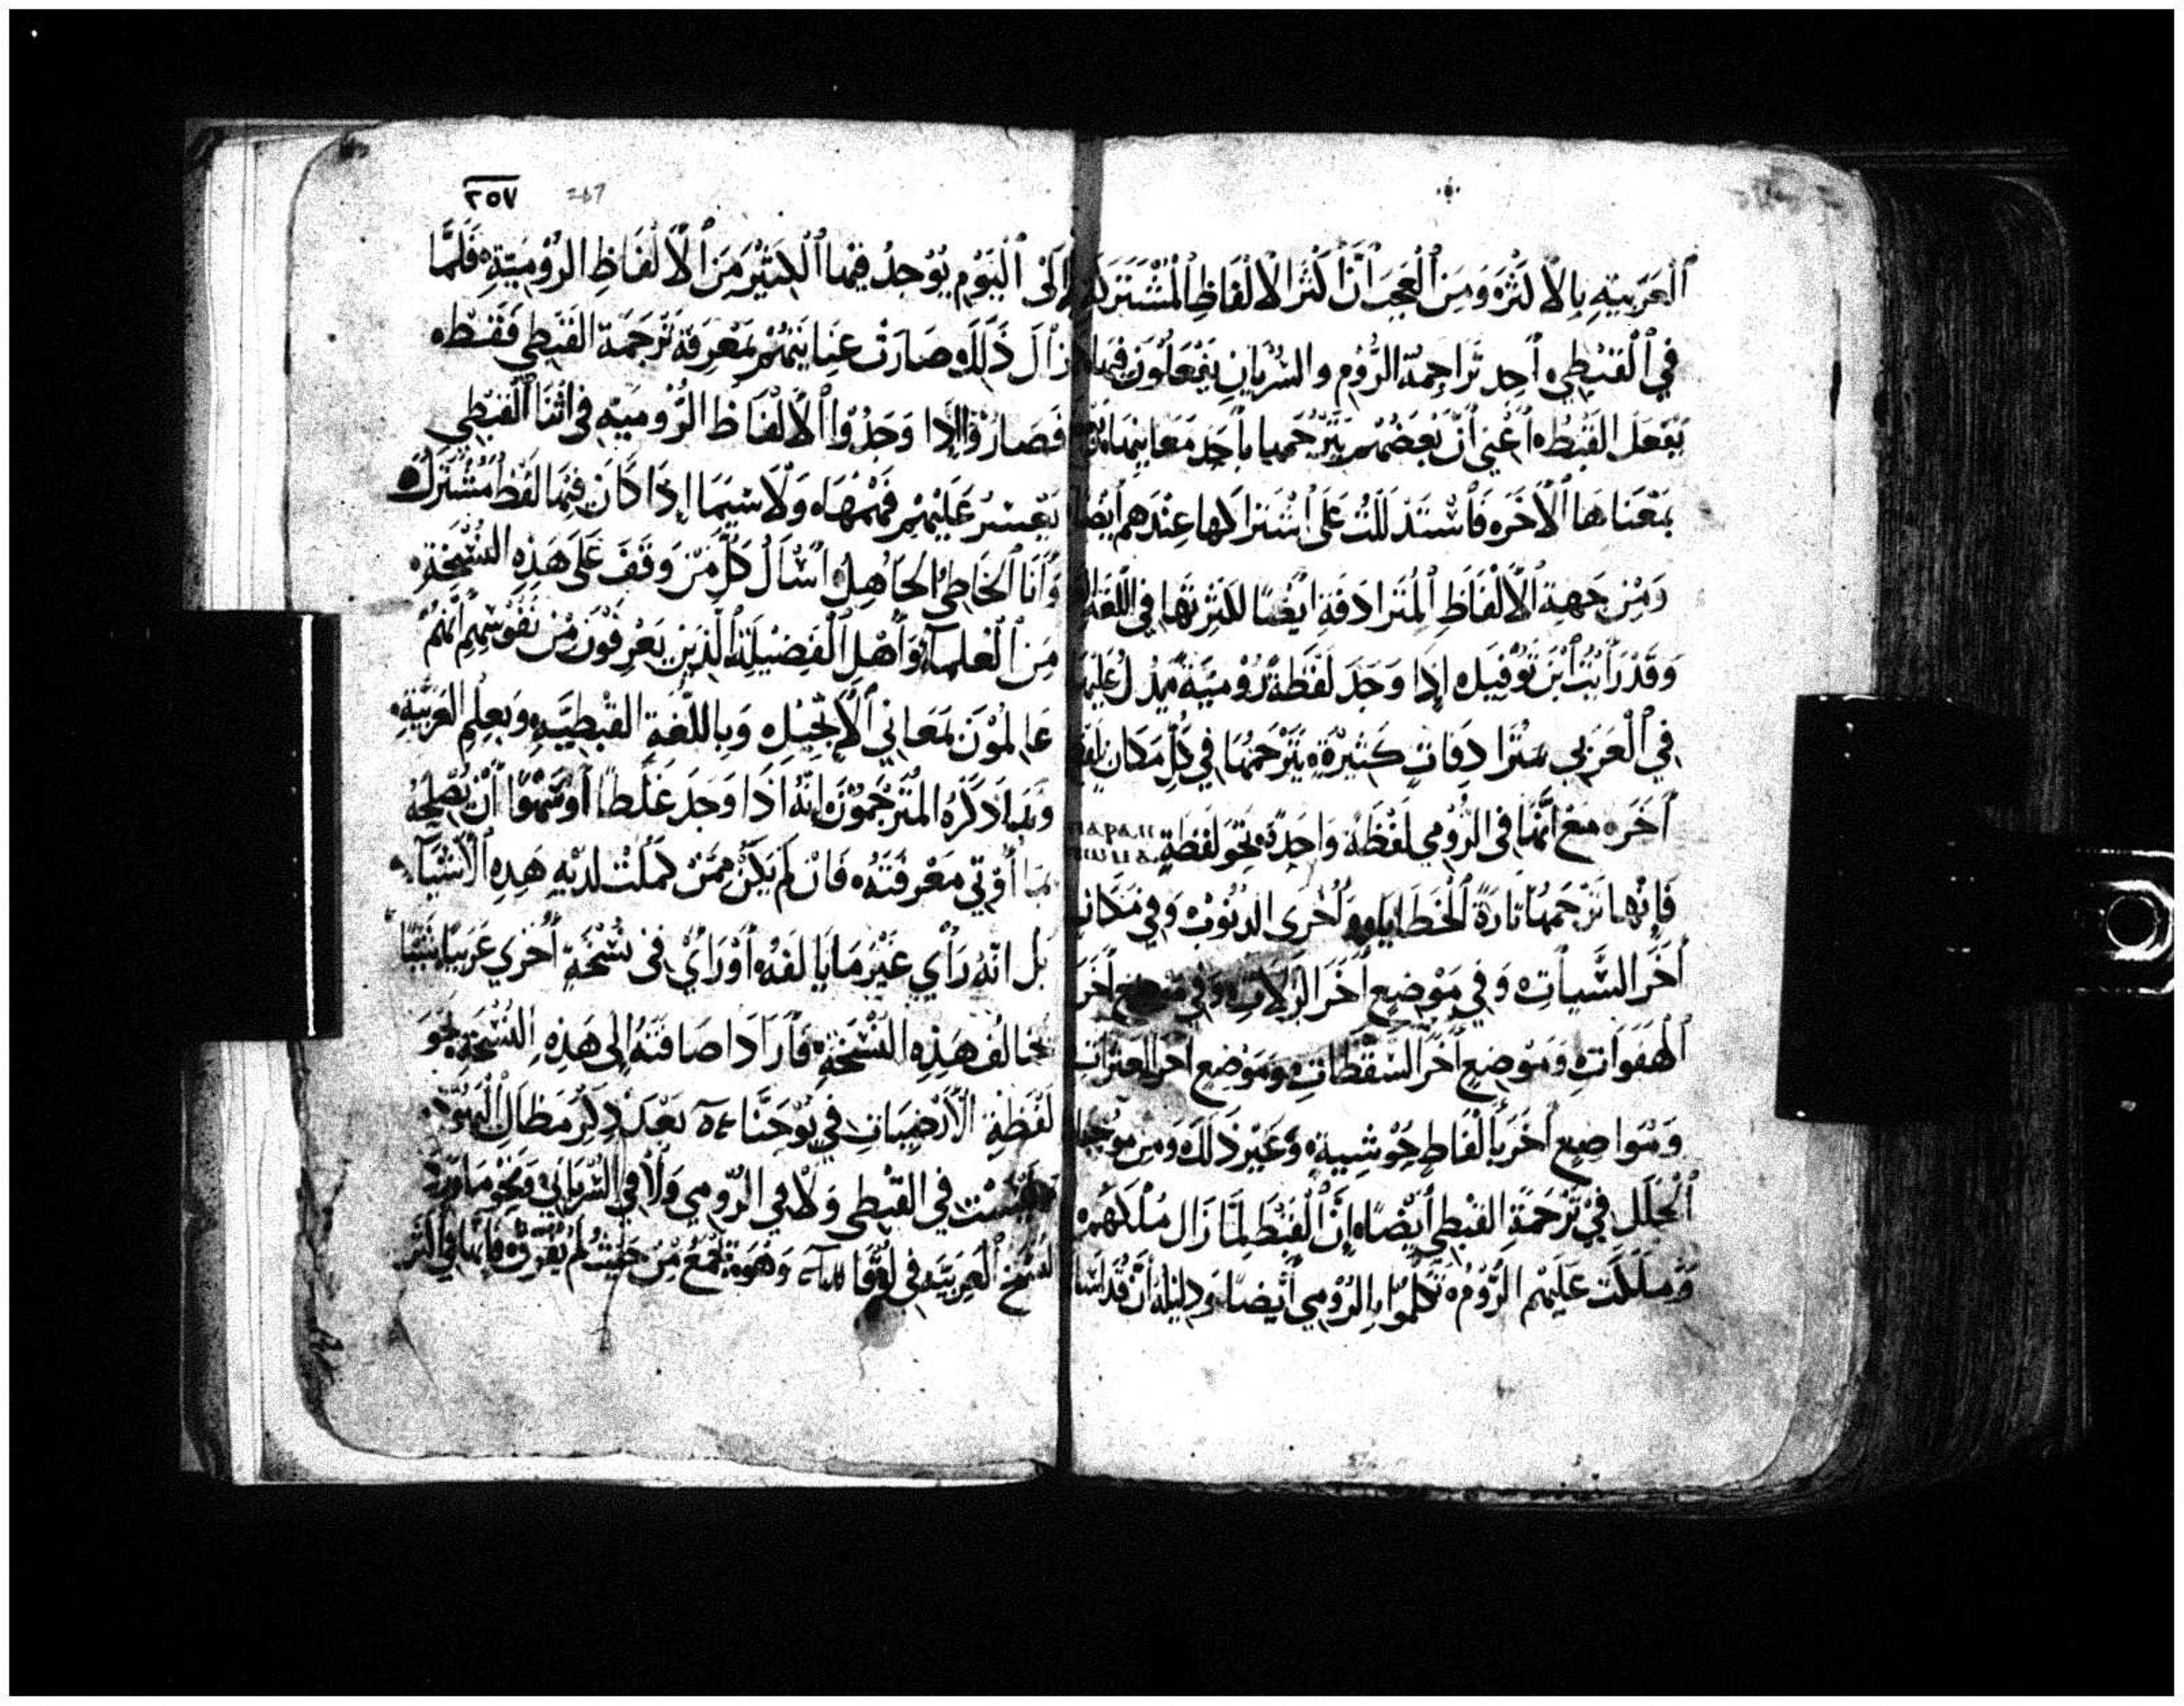 العَرَبيّةِ بالأكثَرِ وَمِنَ العَجَبِ أنَّ أكثَرَ الألفاظِ المُشتَرَكَة
في القبطي أحد تراجمة الروم والسريان يفعلون فيها
يفعل القبط أعني أن بعضهم يترجمها بأحد معانيها
بمعناها الآخر فاستدللت على اشتراكها عندهم أيضا
ومن جهة الألفاظ المترادفة أيضا لكثرتها في اللغة
وقد رأيت ابن توفيل إذا وجد لفظة رومية يدل عليها
في العربي مترادفات كثيرة يترجمها في كل مكان
آخر مع أنها في الرومي لفظة واحدة نحو لفظة ⲡⲁⲣⲁⲡ
فإنها ترجمها تارة الخطايا وأخرى الذنوب وفي مكان
آخر السيات وفي موضع آخر الزلات وفي موضع آخر
الهفوات وموضع آخر السقطات وموضع آخر العثرات
ومواضع أخر بألفاظ حوشية وغير ذلك ومن
الخلل في ترجمة القبطي أيضا إن القبط لما زال ملكهم
وملكت عليهم الروم تكلموا بالرومي أيضا ودليله أن
٢٥٧ 257
إلى اليوم يوجد فيها الكثير من الألفاظ الرومية فلما
زال ذلك وصارت عنايتهم بمعرفة ترجمة القبطي فقط
فصاروا إذا وجدوا الألفاظ الرومية في أثنا القبطي
يعسر عليهم فهمها ولا سيما إذا كان فيها لفظ مشترك
وأنا الخاطئ الجاهل أسأل كل من وقف على هذه النسخة
من العلماء وأهل الفضيلة الذين يعرفون من نفوسهم أنهم
عالمون بمعاني الإنجيل وباللغة القبطية وبعلم العربية
وبما ذكره المترجمون إنه إذا وجد غلطا أو سهوا أن يصلحه
بما أوتي معرفته فإن لم يكن ممن كملت لديه هذه الأشياء
بل انه رأي غير ما يألفه أو رأي في نسخة أخري عربيا شيئا
يخالف هذه النسخة فأراد اضافته إلى هذه النسخة نحو
لفظة الأرضيات في يوحنا بعد ذكر مظال اليهود
ليست في القبطي ولا في الرومي ولا في السرياني ونحو ما
النسخ العربية في لوقا وهو من حيث لم فإنها في